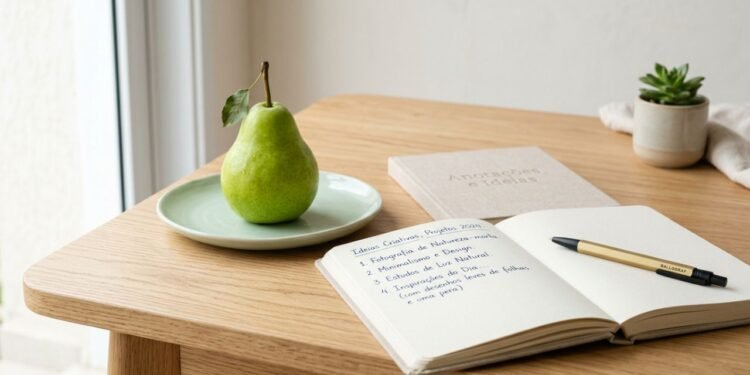 Anotações
e Ideias
Ideias Criativas, Projetos 2024
1. Fotografia de Natureza-morta
2. Minimalismo e Design
3. Estudos de Luz Natural
4. Inspirações do Dia
(com desenhos leves de folhas
e uma pera)
BALLOGRAF